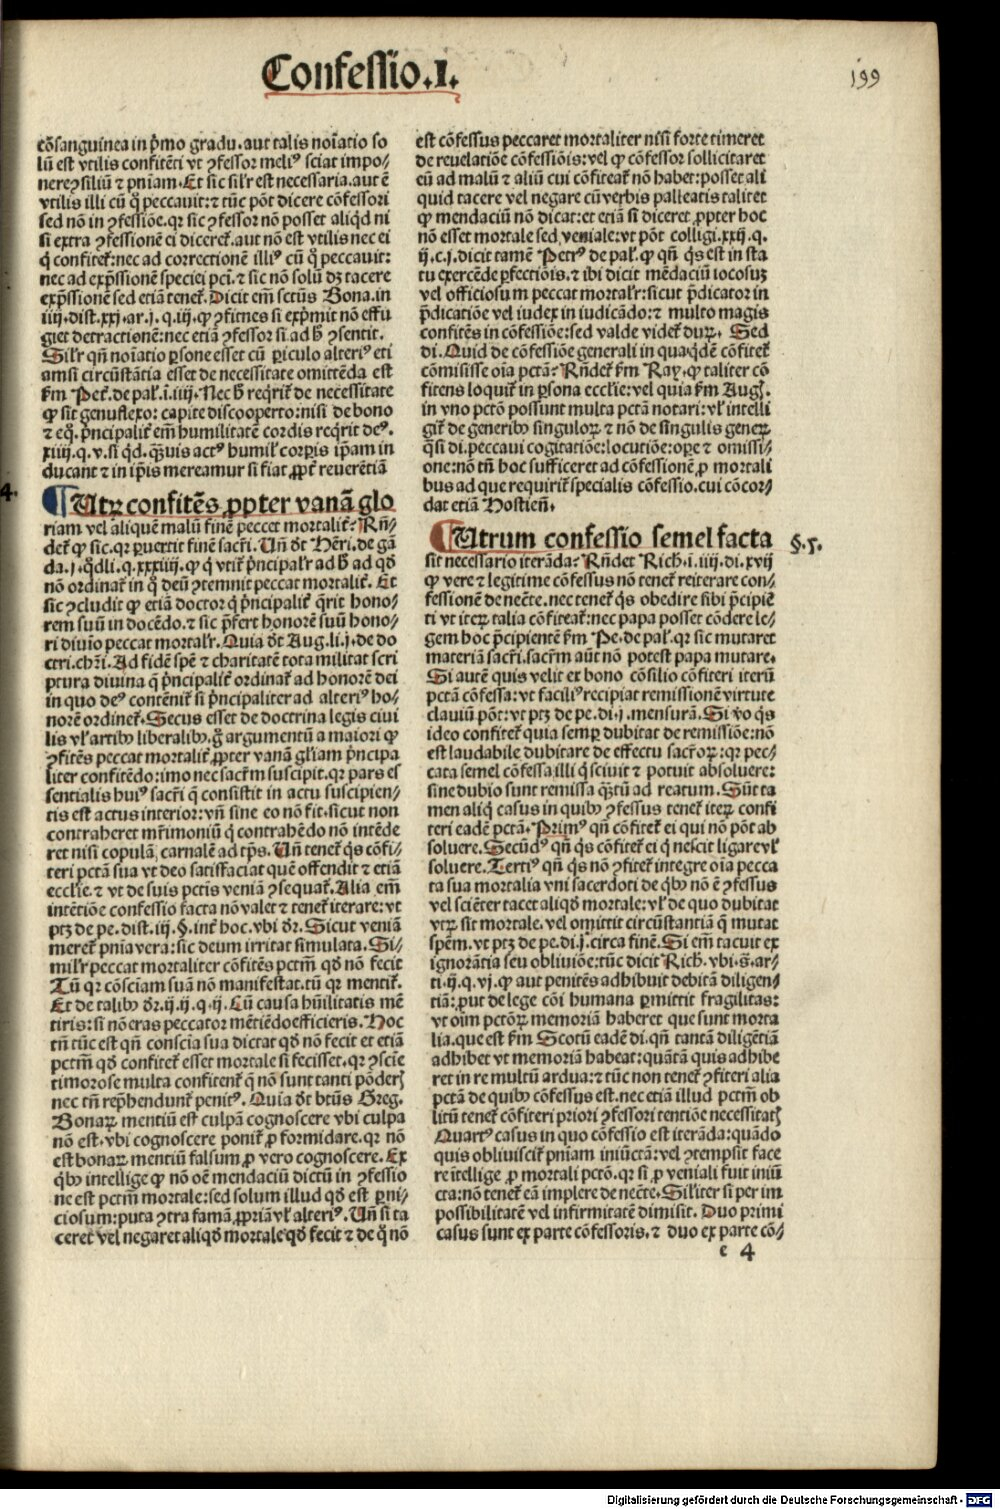 Confessio.I.
199
cõsanguinea in p̃mo gradu.aut talis noĩatio so
lũ est vtilis confitẽti vt ꝯfessor meliꝰ sciat impo⸗
nere ꝯsiliũ ⁊ pñiam.Et sic sil'r est necessaria.aut ẽ
vtilis illi cũ q̃ peccauit:⁊ tũc põt dicere cõfessori
sed nõ in ꝯfessiõe.qr sic ꝯfessor nõ posset aliq̃d ni
si extra ꝯfessionẽ ei diceret̃.aut nõ est vtilis nec ei
q̃ confitet̃:nec ad correctionẽ illiꝰ cũ q̃ peccauit:
nec ad exp̃ssionẽ speciei pcti.⁊ sic nõ solũ dꝫ tacere
exp̃ssionẽ sed etiã tenet̃.Dicit em̃ sctũs Bona.in
iiij.dist.xxj.ar.j.q.iij.ꝙ ꝯfitnes si exp̃mit nõ effu
giet detractionẽ:nec etiã ꝯfessor si ad h̃ ꝯsentit.
Sil'r qñ noĩatio p̲sone esset cũ p̲iculo alteriꝰ eti
amsi circũstãtia esset de necessitate omittẽda est
fm̃ Pet̃.de pal.i.iiij.Nec h̃ req̃rit̃ de necessitate
ꝙ sit genuflexo:capite discooperto:nisi de bono
⁊ eq̃.p̃ncipalit̃ em̃ humilitatẽ cordis req̃rit deꝰ.
xiiij.q.v.si q̃d.q̃ꝫuis actꝰ humil' corp̲is ip̃am in
ducant ⁊ in ip̃is mereamur si fiat ꝓpt̃ reuerẽtiã
4.
¶Utꝝ confitẽs ꝓpter vanã glo
riam vel aliquẽ malũ finẽ peccet mortalit̃?Rñ⸗
det̃ ꝙ sic.qr p̲uertit finẽ sacr̃i.Uñ dt̃ Hẽri.de gã
da.j.q̃dli.q.xxxiiij.ꝙ q̃ vtit̃ p̃ncipal'r ad h̃ ad qđ
nõ ordinat̃ in q̃ deũ ꝯtemnit peccat mortalit̃. Et
sic ꝯcludit ꝙ etiã doctor q̃ p̃ncipalit̃ q̃rit hono⸗
rem suũ in docẽdo.⁊ sic p̃fert honorẽ suũ hono⸗
ri diuio peccat mortal'r.Quia dt̃ Aug.li.j.de do
ctri.chr̃i.Ad fidẽ spẽ ⁊ charitatẽ tota militat scri
ptura diuina q̃ p̃ncipalit̃ ordinat̃ ad honorẽ dei
in quo deꝰ contẽnit̃ si p̃ncipaliter ad alteriꝰ ho⸗
norẽ ordinet̃.Secus esset de doctrina legis ciui
lis vl' artibꝰ liberalibꝰ.g̃ argumentũ a maiori ꝙ
ꝯfitẽs peccat mortalit̃ ꝓpter vanã gl'iam p̃ncipa
liter confitẽdo:imo nec sacr̃m suscipit.qr pars es
sentialis huiꝰ sacr̃i q̃ consistit in actu suscipien⸗
tis est actus interior:vñ sine eo nõ fit.sicut non
contraheret mr̃imoniũ q̃ contrahẽdo nõ intẽde
ret nisi copulã carnalẽ ad tp̃s. Uñ tenet̃ q̃s cõfi⸗
teri pctã sua vt deo satisfaciat quẽ offendit ⁊ etiã
eccl'ie.⁊ vt de suis pctis veniã ꝯsequat̃.Alia em̃
intẽtiõe confessio facta nõ valet ⁊ tenet̃ iterare:vt
ptꝫ de pe.dist.iij.§.int̃ hoc.vbi dr̃. Sicut veniã
meret̃ pñia vera:sic deum irritat simulata. Si⸗
mil'r peccat mortaliter cõfitẽs pctm̃ qđ nõ fecit
Tũ qr cõsciam suã nõ manifestat.tũ qr mentit̃.
Et de talibꝰ dr̃.ij.ij.q.ij. Cũ causa hũilitatis mẽ
tiris:si nõ eras peccator mẽtiẽdo efficieris. Hoc
tñ tũc est qñ conscia sua dictat qđ nõ fecit et etiã
pctm̃ qđ confitet̃ esset mortale si fecisset.qr ꝯsciẽ
timorose multa confitent̃ q̃ nõ sunt tanti põderꝭ
nec tñ rep̃hendunt̃ penitꝰ. Quia dt̃ btũs Greg.
Bonaꝝ mentiũ est culpã cognoscere vbi culpa
nõ est.vbi cognoscere ponit̃ ꝓ formidare.qr nõ
est bonaꝝ mentiũ falsum ꝓ vero cognoscere. Ex
q̃bꝰ intellige ꝙ nõ oẽ mendaciũ dictũ in ꝯfessio
ne est pctm̃ mortale:sed solum illud qđ est p̲ni⸗
ciosum:puta ꝯtra famã ꝓpriã vl' alteriꝰ. Uñ si ta
ceret vel negaret aliqđ mortale qđ fecit ⁊ de q̃ nõ
est cõfessus peccaret mortaliter nisi forte timeret
de reuelatiõe cõfessiõis:vel ꝙ cõfessor sollicitaret
eũ ad malũ ⁊ aliũ cui cõfiteat̃ nõ habet:posset ali
quid tacere vel negare cũ verbis palleatis talitet
ꝙ mendaciũ nõ dicat:et etiã si diceret ꝓpter hoc
nõ esset mortale sed veniale:vt põt colligi.xxij.q.
ij.c.j.dicit tamẽ Petrꝰ de pal.ꝙ qñ q̃s est in sta
tu exercẽde p̲fectiõis.⁊ ibi dicit mẽdaciũ iocosuꝫ
vel officiosum peccat mortal'r:sicut p̃dicator in
p̃dicatiõe vel iudex in iudicãdo:⁊ multo magis
confitẽs in cõfessiõe:sed valde videt̃ duꝝ. Sed
di. Quid de cõfessiõe generali in qua q̃dẽ cõfitet̃
cõmisisse oĩa pctã?Rñdet̃ fm̃ Ray.ꝙ taliter cõ
fitens loquit̃ in p̲sona eccl'ie:vel quia fm̃ Aug.
in vno pctõ possunt multa pctã notari:vl' intelli
git̃ de generibꝰ singuloꝝ ⁊ nõ de singulis geneꝝ
q̃si di.peccaui cogitatiõe:locutiõe:ope ⁊ omissi⸗
one:non tñ hoc sufficeret ad cõfessionẽ ꝓ mortali
bus ad que requirit̃ specialis cõfessio.cui cõcor⸗
dat etiã Hostieñ.
¶Utrum confessio semel facta
§.5.
sit necessario iterãda?Rñdet Rich.i.iiij.di.xvij
ꝙ vere ⁊ legitime cõfessus nõ tenet̃ reiterare con⸗
fessionẽ de necẽ̃te.nec tenet̃ q̃s obedire sibi p̃cipiẽ
ti vt iteꝝ talia cõfiteat̃:nec papa posset cõdere le⸗
gem hoc p̃cipientẽ fm̃ Pe.de pal.qr sic mutaret
materiã sacr̃i.sacr̃m aũt nõ potest papa mutare.
Si autẽ quis velit ex bono cõsilio cõfiteri iterũ
pctã cõfessa:vt faciliꝰ recipiat remissionẽ virtute
clauiũ põt:vt ptꝫ de pe.di.j.mensurã.Si ṽo q̃s
ideo confitet̃ quia semp̲ dubitat de remissiõe:nõ
est laudabile dubitare de effectu sacr̃oꝝ:qr pec⸗
cata semel cõfessa illi q̃ sciuit ⁊ potuit absoluere:
sine dubio sunt remissa q̃ꝫtũ ad reatum.Sũt ta
men aliq̃ casus in quibꝰ ꝯfessus tenet̃ iteꝝ confi
teri eadẽ pctã.Primꝰ qñ cõfitet̃ ei qui nõ põt ab
soluere.Secũdꝰ qñ q̃s cõfitet̃ ei q̃ nescit ligare vl'
soluere.Tertiꝰ qñ q̃s nõ ꝯfitet̃ integre oĩa pecca
ta sua mortalia vni sacerdoti de q̃bꝰ nõ ẽ ꝯfessus
vel sciẽter tacet aliqđ mortale:vl' de quo dubitat
vtꝝ sit mortale.vel omittit circũstantiã q̃ mutat
spẽm.vt ptꝫ de pe.di.j.circa finẽ.Si em̃ tacuit ex
ignorãtia seu obliuiõe:tũc dicit Rich.vbi.s̃.ar⸗
ti.ij.q.vj.ꝙ aut penitẽs adhibuit debitã diligen⸗
tiã:ꝓut de lege cõi humana p̲mittit fragilitas:
vt oĩm pctõꝝ memoriã haberet que sunt morta
lia.que est fm̃ Scotũ eadẽ di.qñ tantã diligẽtiã
adhibet vt memoriã habeat:quãtã quis adhibe
ret in re multũ ardua:⁊ tũc non tenet̃ ꝯfiteri alia
pctã de quibꝰ cõfessus est.nec etiã illud pctm̃ ob
litũ tenet̃ cõfiteri priori ꝯfessori tentiõe necessitatꝭ
Quartꝰ casus in quo cõfessio est iterãda:quãdo
quis obliuiscit̃ pñiam iniũctã:vel ꝯtempsit face
re ĩtellige ꝓ mortali pctõ.qr si ꝓ veniali fuit iniũ
cta:nõ tenet̃ eã implere de necẽ̃te.Sil'iter si per im
possibilitatẽ vel infirmitatẽ dimisit. Duo primi
casus sunt ex parte cõfessoris.⁊ duo ex parte cõ⸗
e 4
Digitalisierung gefördert durch die Deutsche Forschungsgemeinschaft - DFG